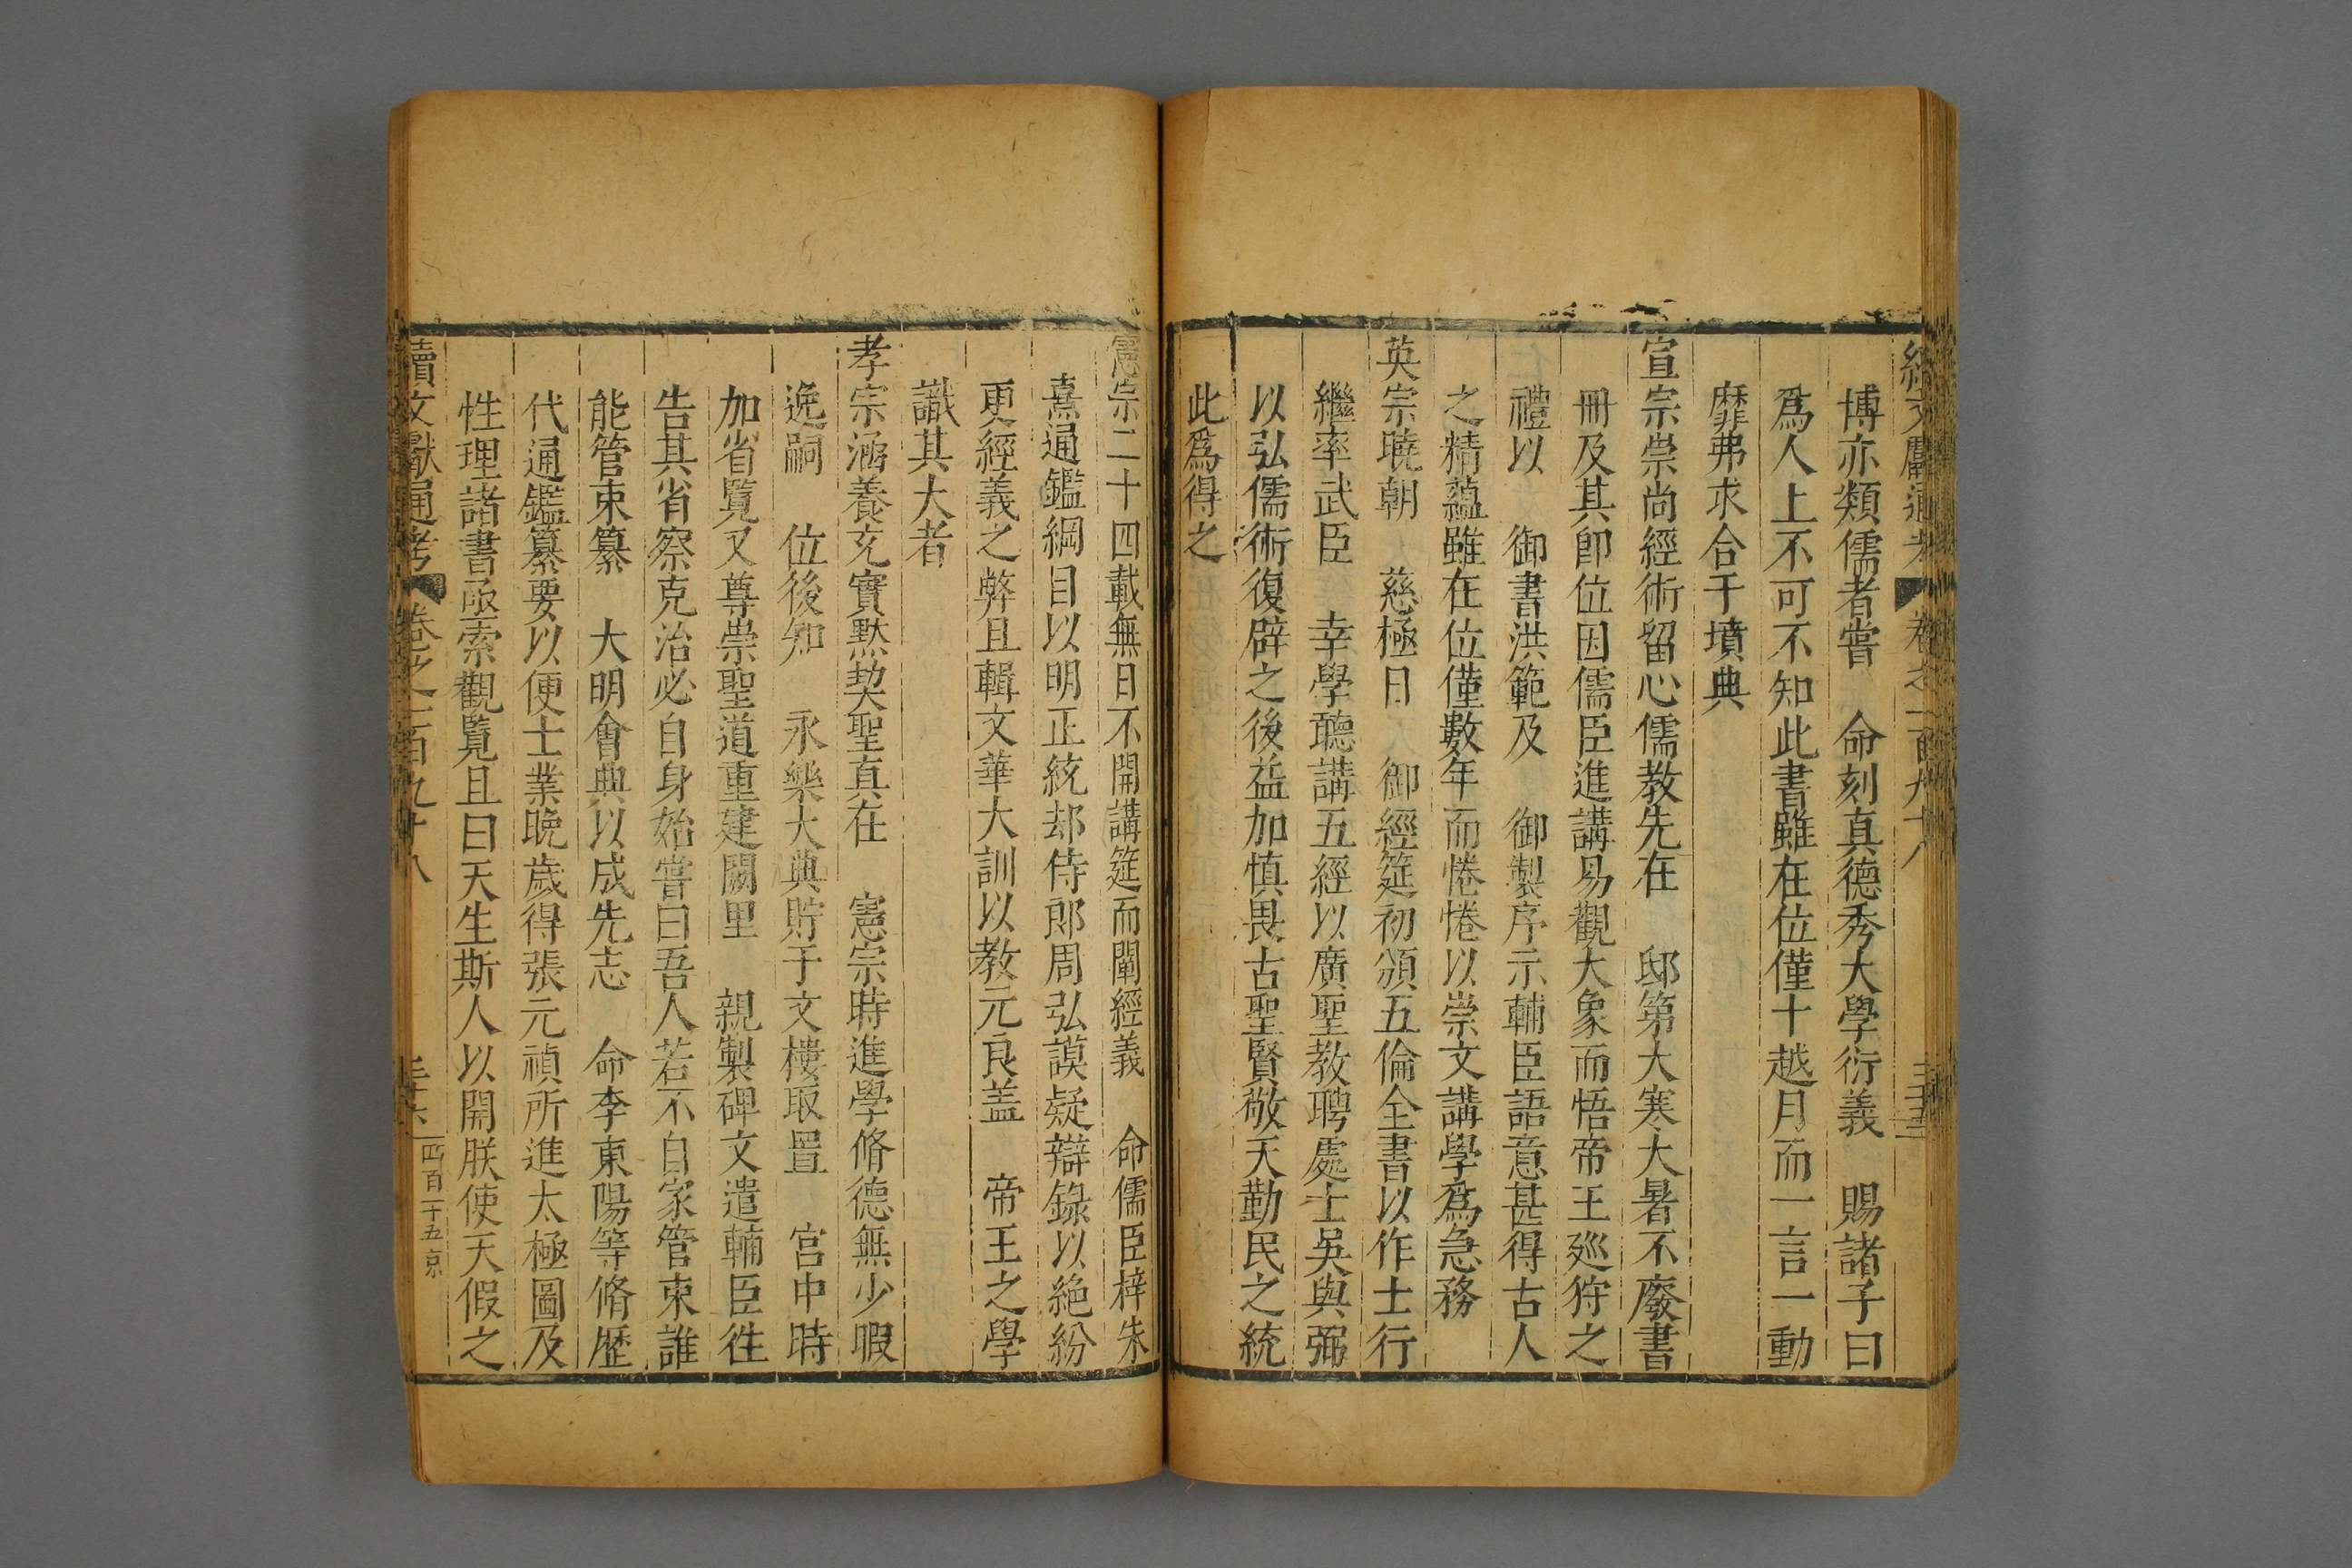 續文獻通考 卷之一百九十八 三十五
博亦類儒者嘗 命刻真德秀大學衍義 賜諸子曰
爲人上不可不知此書雖在位僅十越月而一言一動
靡弗求合于墳典
宣宗崇尚經術留心儒教先在 邸第大寒大暑不廢書
冊及其卽位因儒臣進講易觀大象而悟帝王廵狩之
禮以 御書洪範及 御製序示輔臣語意甚得古人
之精蘊雖在位僅數年而惓惓以崇文講學爲急務
英宗曉朝 慈極日 御經筵初頒五倫全書以作士行
繼率武臣 幸學聽講五經以廣聖教聘處士吳與弼
以弘儒術復辟之後益加慎畏古聖賢敬天勤民之統
此爲得之
憲宗二十四載無日不開講筵而闡經義 命儒臣梓朱
熹通鑑綱目以明正統却侍郎周弘謨疑辯錄以絶紛
更經義之弊且輯文華大訓以教元良盖 帝王之學
識其大者
孝宗涵養充實黙契聖真在 憲宗時進學脩德無少暇
逸嗣 位後知 永樂大典貯于文樓取置 宫中時
加省覽又尊崇聖道重建闕里 親製碑文遣輔臣徃
告其省察克治必自身始嘗曰吾人若不自家管束誰
能管束纂 大明會典以成先志 命李東陽等脩歷
代通鑑纂要以便士業晚歲得張元禎所進太極圖及
性理諸書亟索觀覽且曰天生斯人以開朕使天假之
續文獻通考 卷之一百九十八 三十六 四百二十五 京